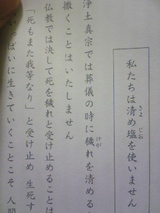 私たちは清め塩を使いません
浄土真宗では葬儀の時に穢れを清める
撒くことはいたしません
仏教では決して死を穢れと受け止めることは
「死もまた我等なり」と受け止め 生死す
ぱいに生きていくことこそ 人間